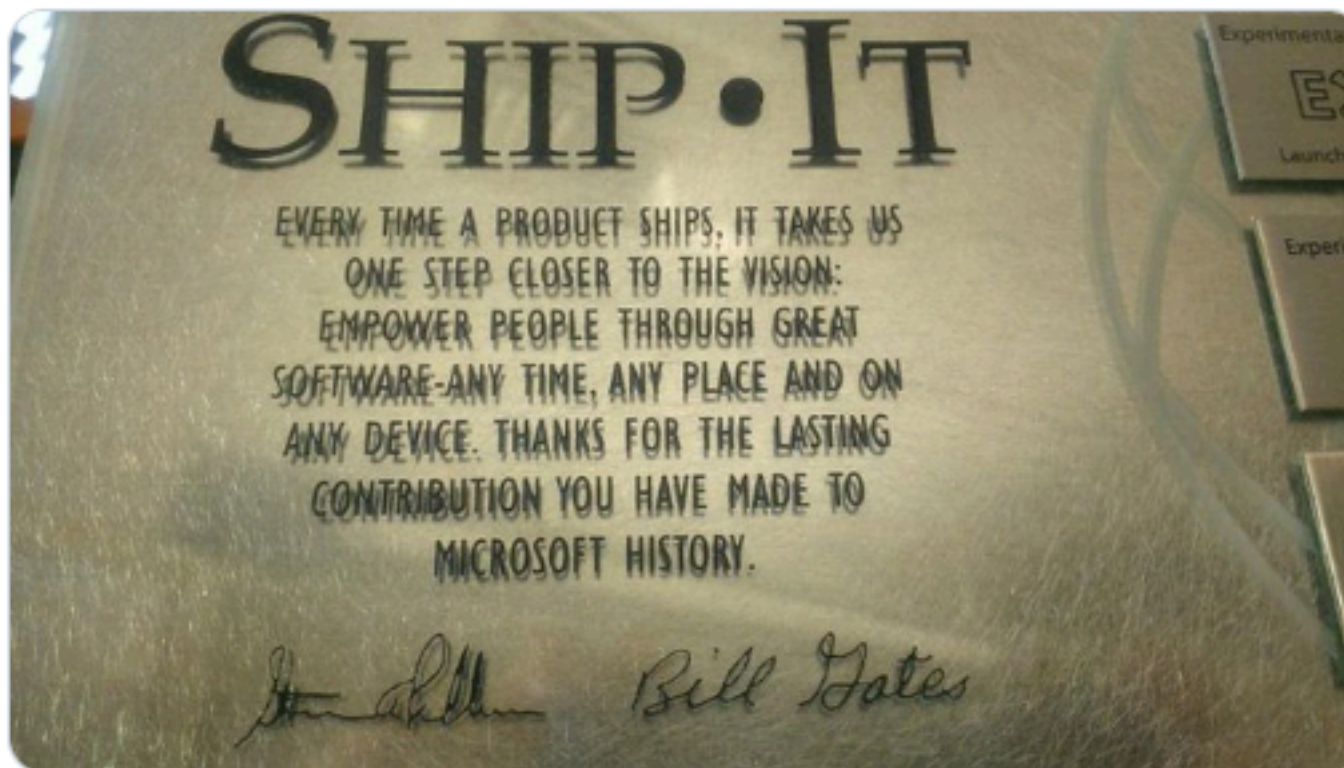 SHIP•IT
EVERY TIME A PRODUCT SHIPS, IT TAKES US
ONE STEP CLOSER TO THE VISION:
EMPOWER PEOPLE THROUGH GREAT
SOFTWARE-ANY TIME, ANY PLACE AND ON
ANY DEVICE. THANKS FOR THE LASTING
CONTRIBUTION YOU HAVE MADE TO
MICROSOFT HISTORY.
Bill Gates